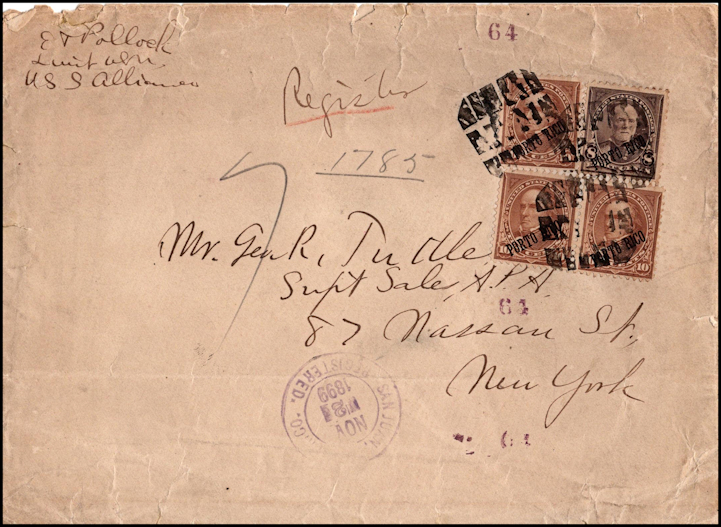 E T Pollock
Lieut USN.
USS Alliance
64
Register
1785
PORTO RICO
PORTO RICO
PORTO RICO
PORTO RICO
10
Mr. Geo. R. Tuttle
Supt Sales A.P.A.
64
87 Nassau St,
New York
SAN JUAN,
REGISTERED.
NOV
1899
64